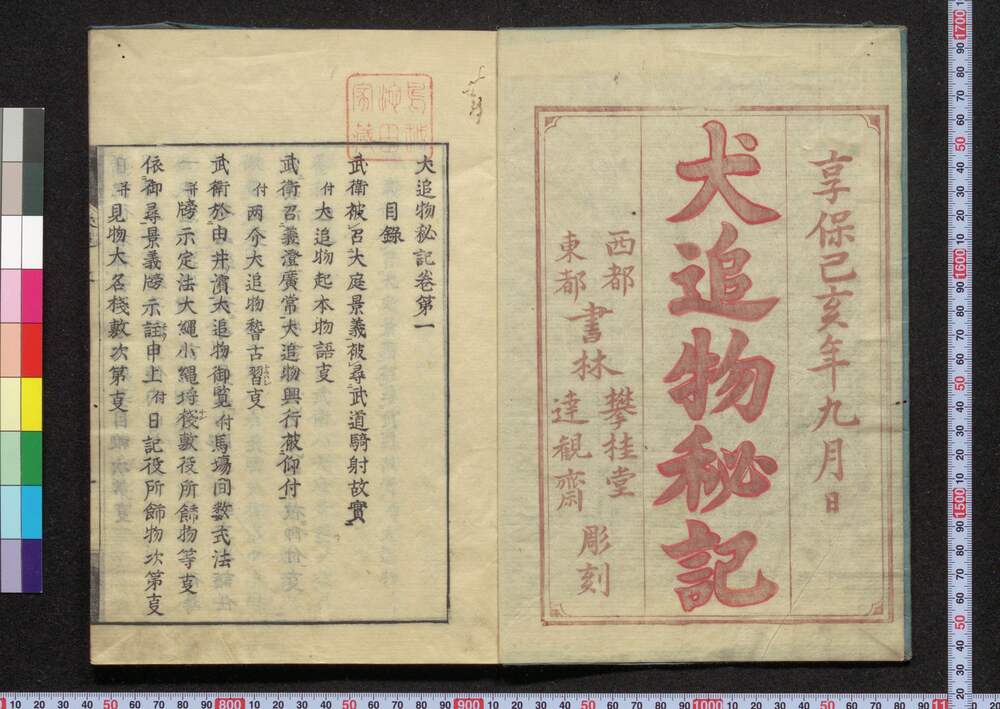 享保己亥年九月日
犬追物秘記
西都
東都
書林
攀桂堂
達観齋
彫刻
犬追物秘記巻第一
目録
武衛被召大庭景義被尋武道騎射故實
付犬追物起本物語叓
武衛召義澄廣常犬追物興行被仰付
付両介犬追物稽古習叓
武衛於由井濱犬追物御覧付馬場间数式法
一 牓示定法大縄小縄埒桟敷役所餝物等叓
依御尋景義牓示註申上付日記役所餝物次第叓
并見物大名桟敷次第叓